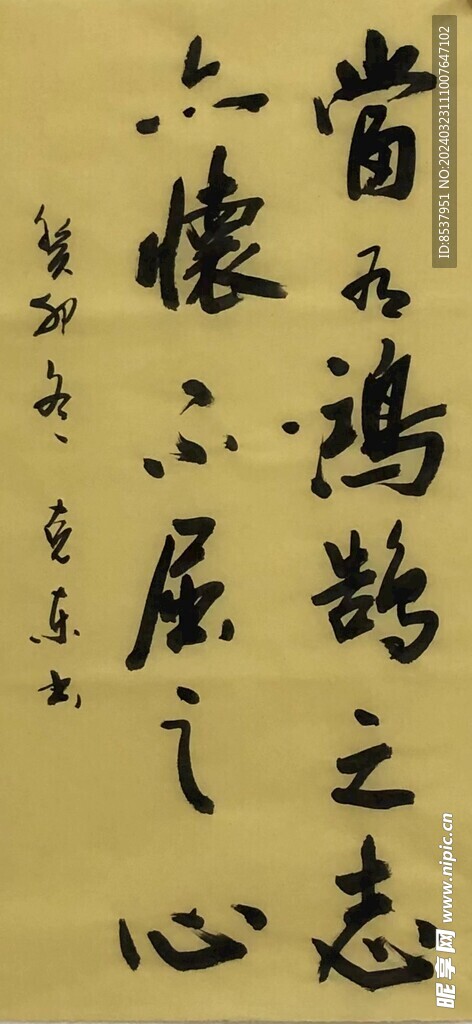 當有鴻鵠之志
亦懷不屈之心
癸卯冬 克東书
ID:8537951 NO:20240323111007647102
昵享网 www.nipic.cn